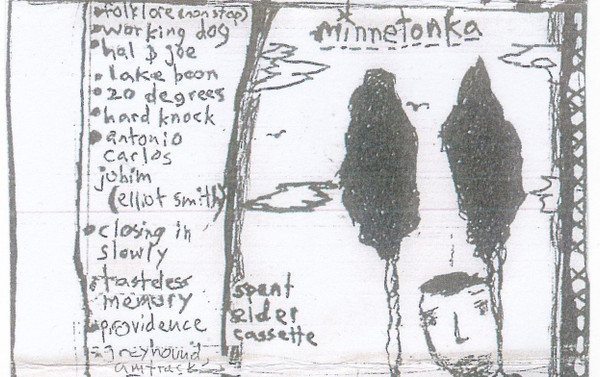 folklore (nonstop)
working dog
hal & joe
lake boon
20 degrees
hard knock
antonio
carlos
jobim
(elliot smith)
closing in
slowly
tasteless
memory
providence
greyhound,
amtrack
minnetonka
spent
elder
cassette